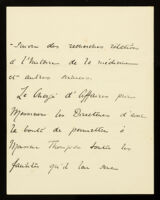 - suivre des recherches relatives
à l'histoire de la médecine
et autres sciences.
Le Chargé d'Affaires prie
Monsieur le Directeur d'avoir
la bonté de permettre à
Monsieur Thompson toutes les
facilités qu'il lui sera